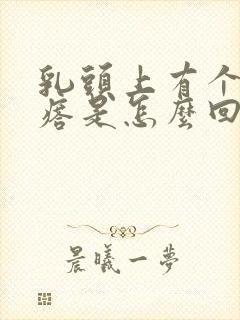 乳頭上有个
痞是怎麼回
晨曦一夢